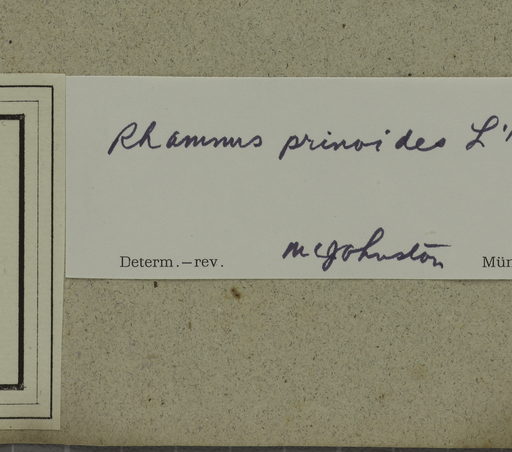 Rhamnus prinoides L'
Determ.—rev. MCJohnston Mün